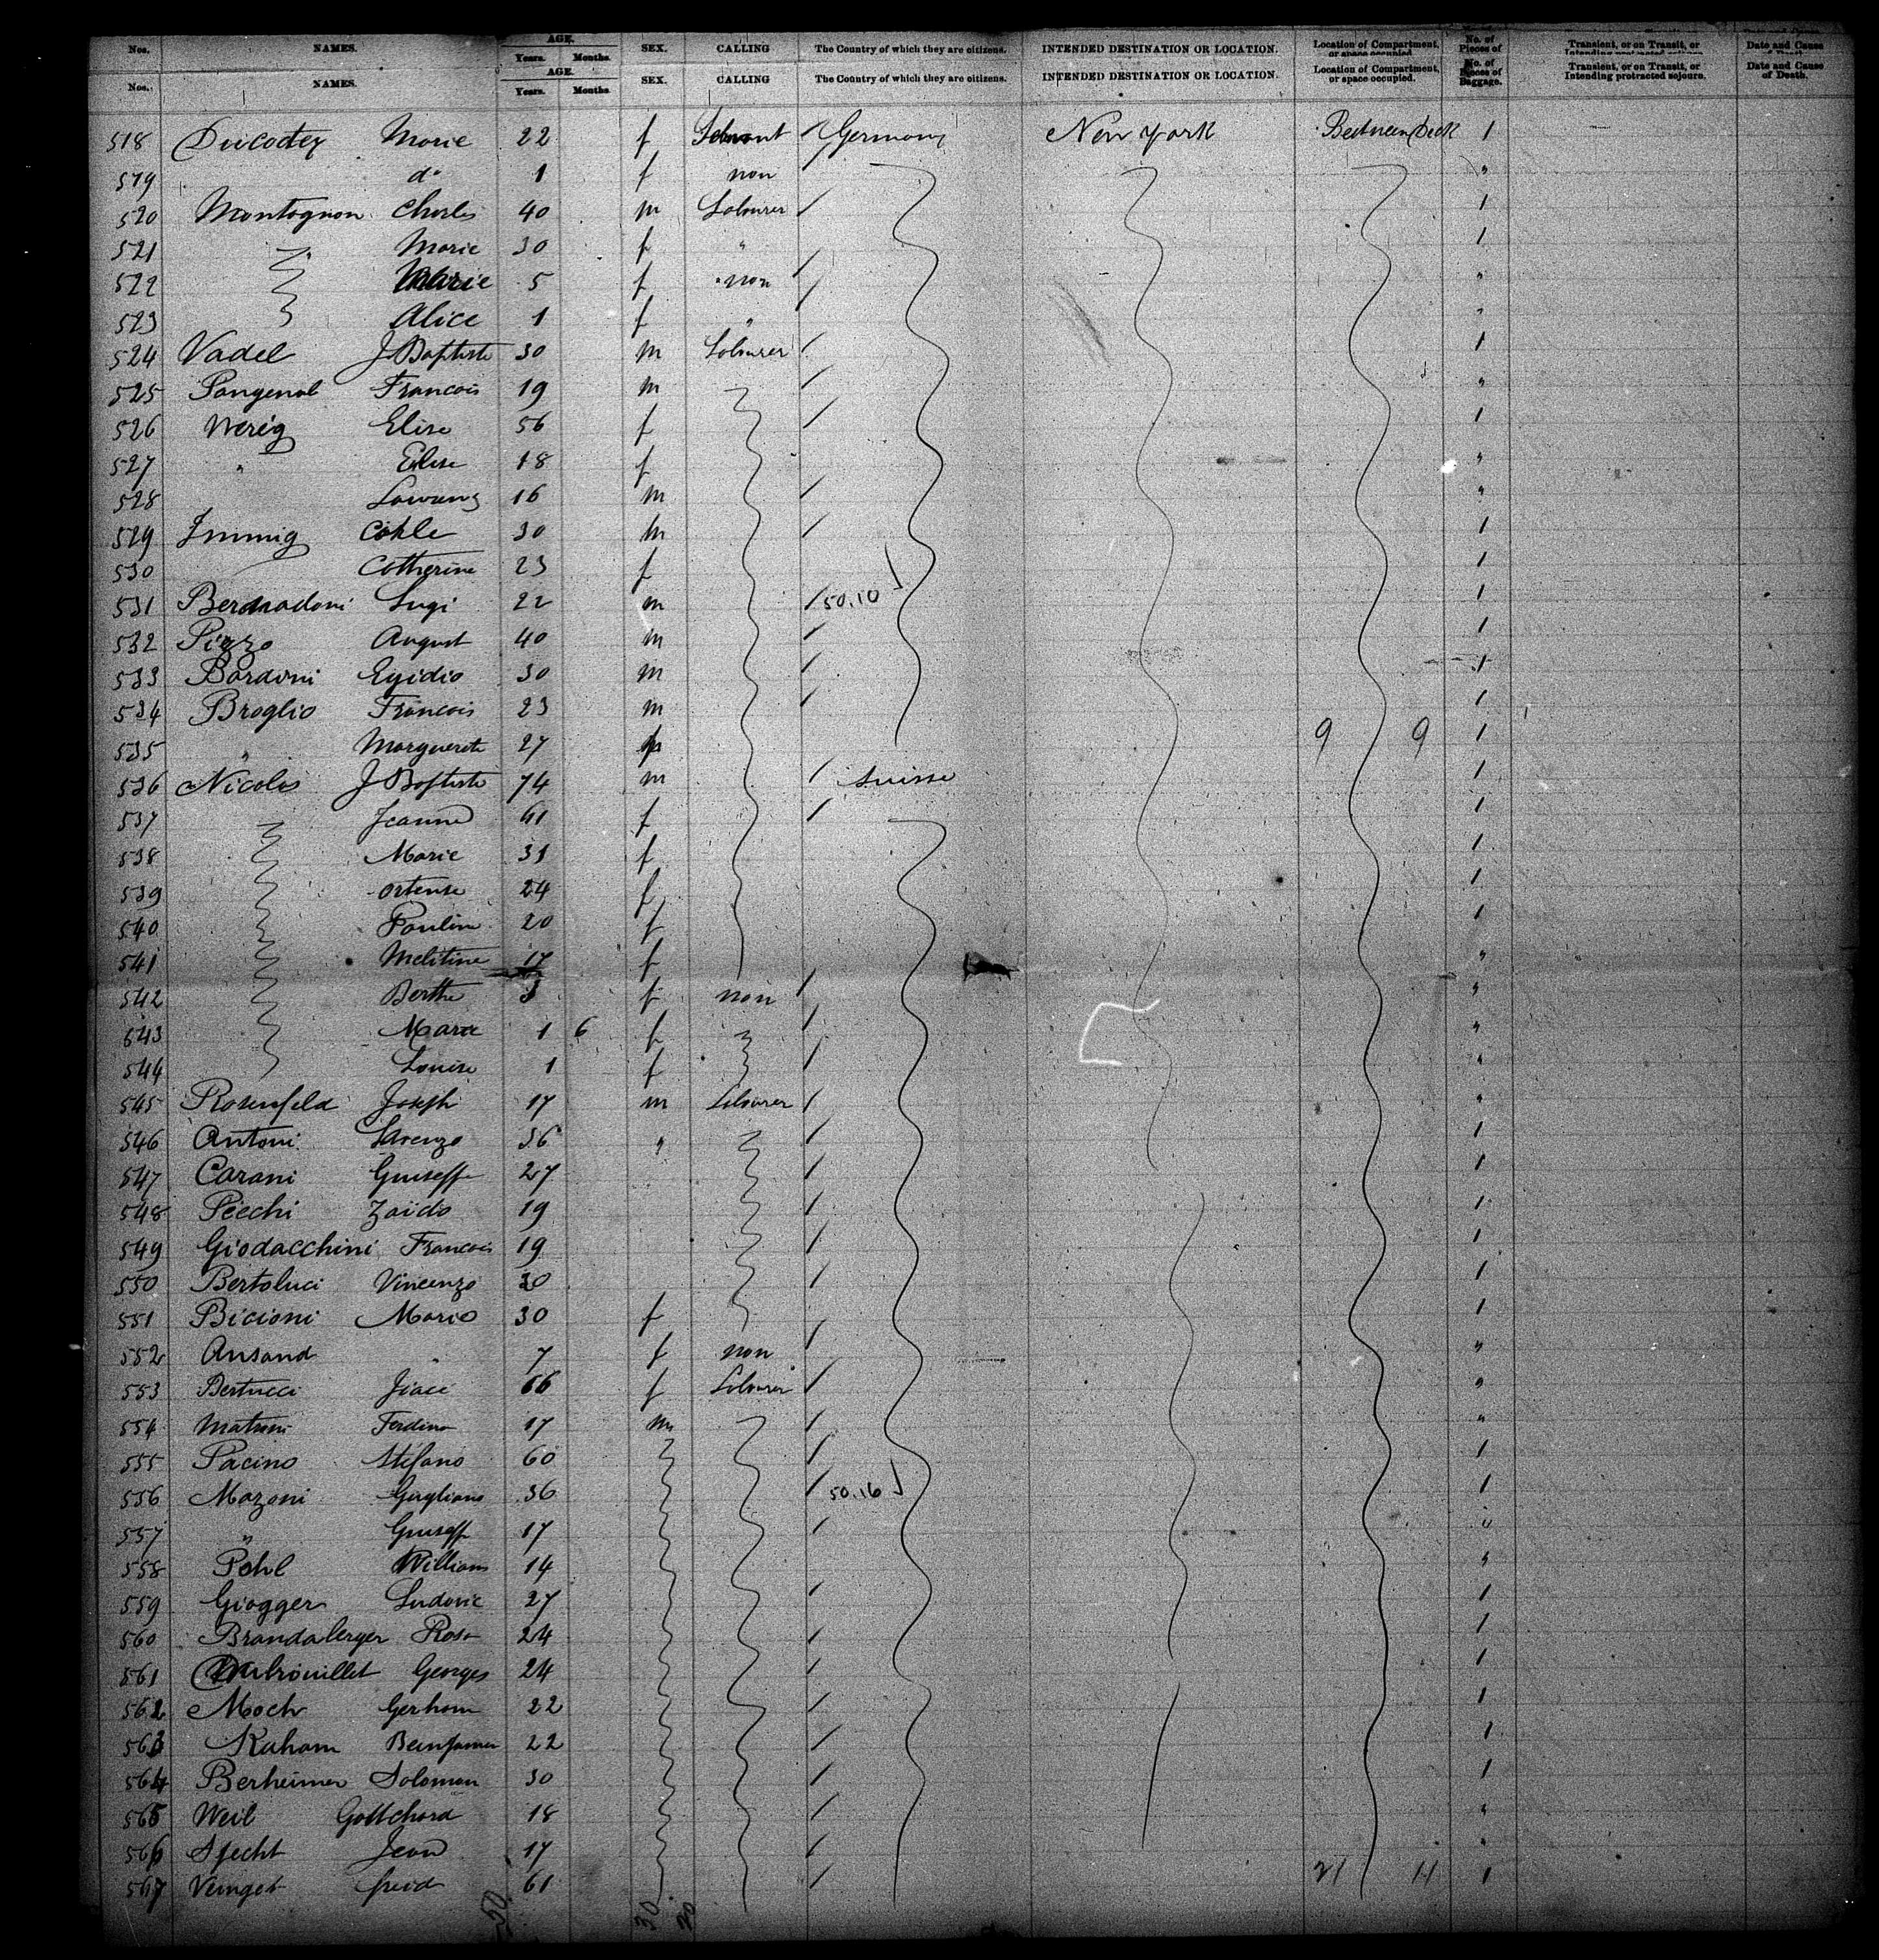 Nos. NAMES. AGE. Years. Months. SEX. CALLING The Country of which they are citizens. INTENDED DESTINATION OR LOCATION. Location of Compartment, or space occupied No. of Pieces of Transient, or on Transit, or Date and Cause
Nos. NAMES. AGE. Years. Months. SEX. CALLING The Country of which they are citizens. INTENDED DESTINATION OR LOCATION. Location of Compartment, or space occupied. No. of Pieces of Baggage. Transient, or on Transit, or Intending protracted sojourn. Date and Cause of Death.
518 Marie 22 f Germany New York Between Deck 1
519 do 1 f non "
520 Montognon Charles 40 m Labourer 1
521 Marie 30 f " 1
522 Marie 5 f non "
523 Alice 1 f " "
524 Vadel J Baptiste 30 m Labourer 1
525 Francois 19 m "
526 Elise 56 f 1
527 " Elise 18 f "
528 16 m "
529 Immig 30 m 1
530 Catherine 23 f 1
531 Bernadoni Luigi 22 m 50.10 1
532 August 40 m 1
533 Bardoni Egidio 30 m 1
534 Broglio Francois 23 m 1
535 " Marguerite 27 f 9 9 1
536 Nicolas J Baptiste 74 m Suisse 1
537 Jeanne 61 f 1
538 Marie 31 f 1
539 Ortense 24 f 1
540 Pauline 20 f 1
541 Melitine 17 f "
542 Berthe 3 f non "
543 1 6 f "
544 Louise 1 f "
545 Rosenfeld Joseph 17 m Labourer "
546 Antoni Lorenzo 36 " 1
547 Carani Giuseppe 27 1
548 Piechi Zaido 19 1
549 Giodacchini Francois 19 1
550 Bertoluci Vincenzo 30 1
551 Bicioni Maria 30 f 1
552 Ansand " 7 f non "
553 Bertucci 66 f Labourer "
554 Ferdino 17 m "
555 Pacino Stefano 60 1
556 Mazoni Giugliano 36 50.16 1
557 " Giusepp 17 "
558 Pohl William 14 "
559 Giogger Ludovic 27 1
560 Brandaberger Rosa 24 1
561 Georges 24 1
562 Moch Gerhom 22 1
563 Kahom 22 1
564 Berheimer Solomon 30 1
565 Weil Gottchard 18 "
566 Specht Jean 17 "
567 61 21 11 1
50 30 20